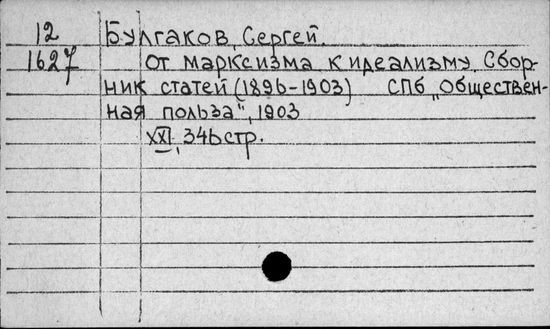 12 Булгаков, Сергей.
1627 От марксизма к идеализму. Сбор-
ник статей (1896-1903) СПб „Обществен-
ная польза", 1903
XXI, 346 стр.